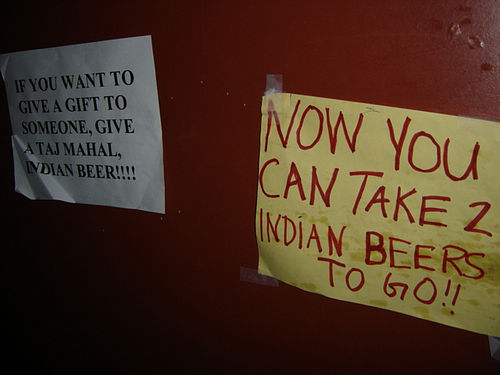 IF YOU WANT TO
GIVE A GIFT TO
SOMEONE, GIVE
A TAJ MAHAL,
INDIAN BEER!!!!
NOW YOU
CAN TAKE 2
INDIAN BEERS
TO GO!!